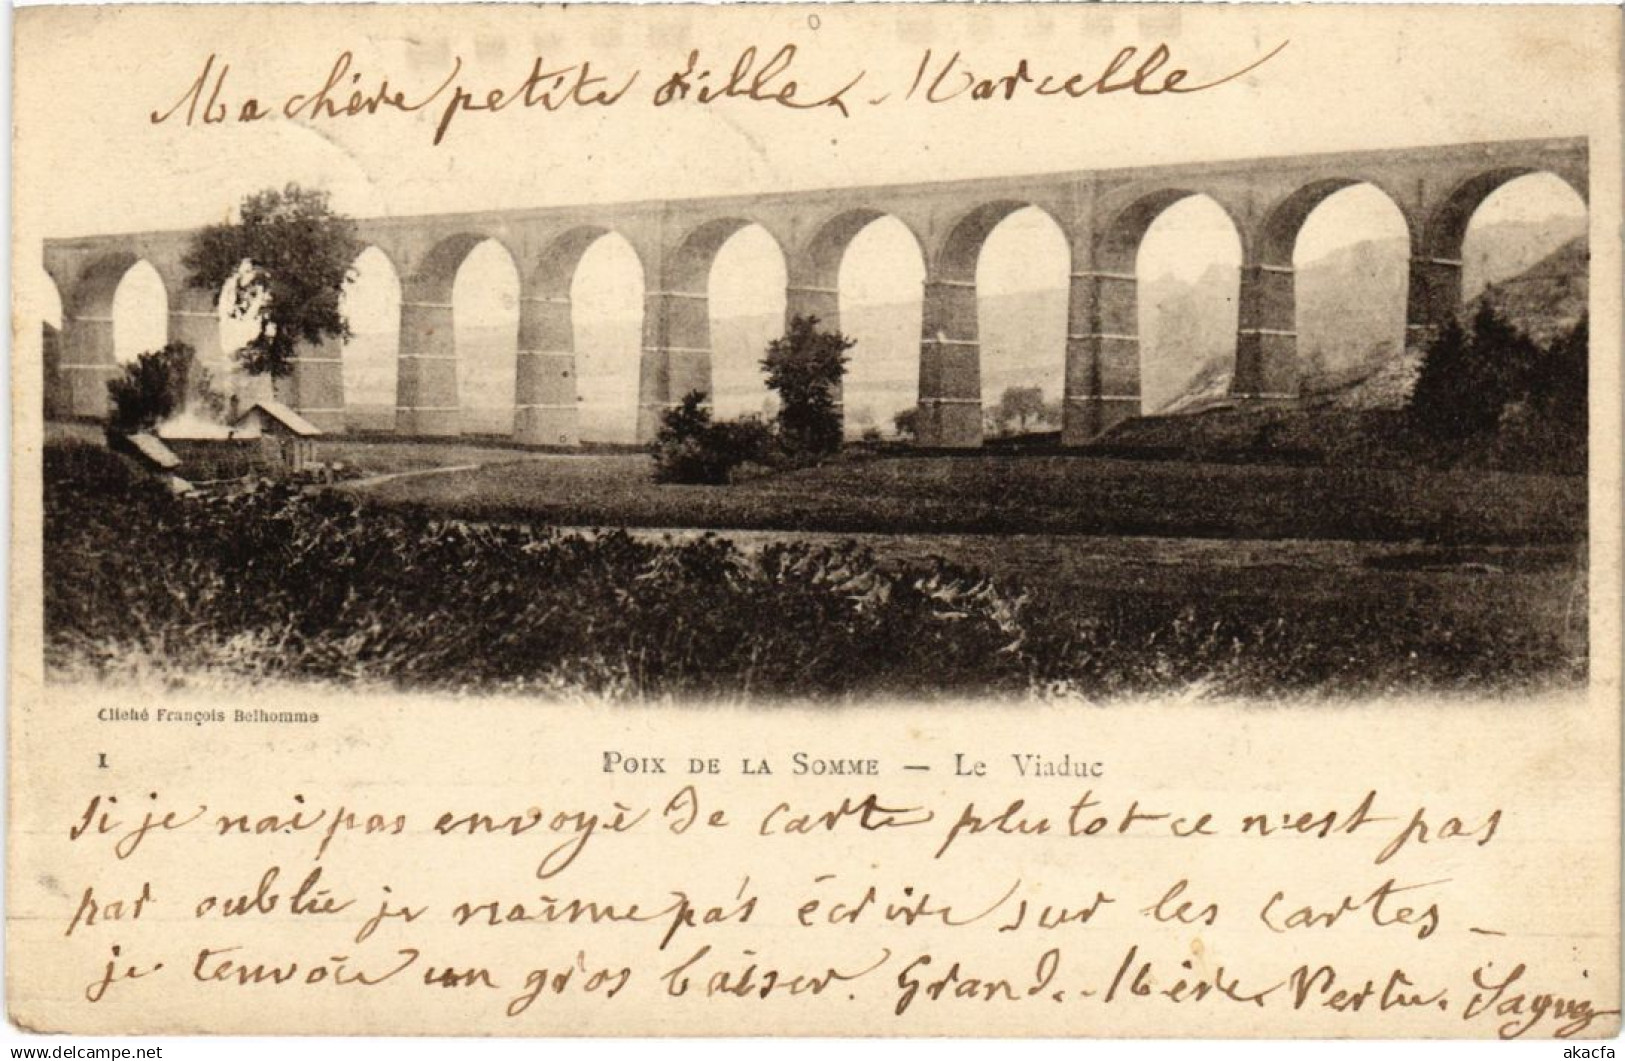 Ma chère petite fille Marcelle
Cliché François Belhomme
1
POIX DE LA SOMME — Le Viaduc
Si je nai pas envoyé de carte plutot ce n'est pas
par oublie je n'aime pas écrire sur les cartes
je tenvoie un gros baiser. Grand. Mère Vertu.
akacfa